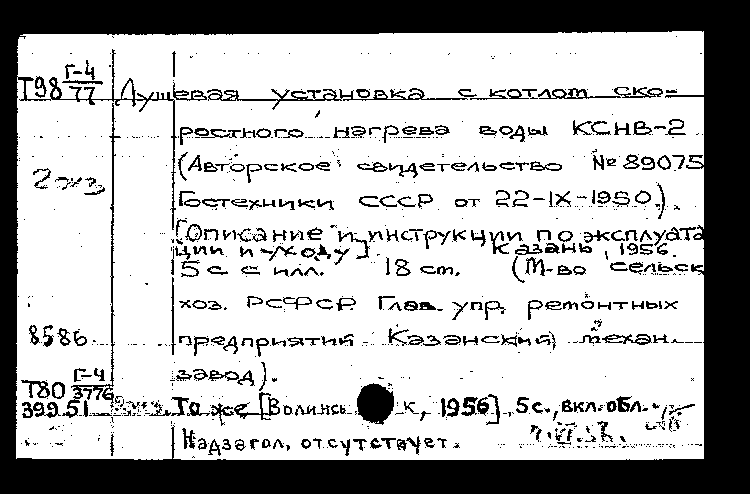 Т98 Г-4/77 Душевая установка с котлом ско-
ростного нагрева воды КСНВ-2
(Авторское свидетельство № 89075
2 экз
Гостехники СССР от 22-IX-1950.).
[Описание и инструкции по эксплуата
ции и уходу] Казань, 1956.
5 с. с илл. 18 cm. (М-во сельск
хоз. РСФСР. Глав. упр. ремонтных
8586 предприятий Казанский механ.
завод).
Т80 Г-4/3776
399.51 То же [Волинск, 1956] 5 с., вкл. обл.
Надзагол. отсутствует.